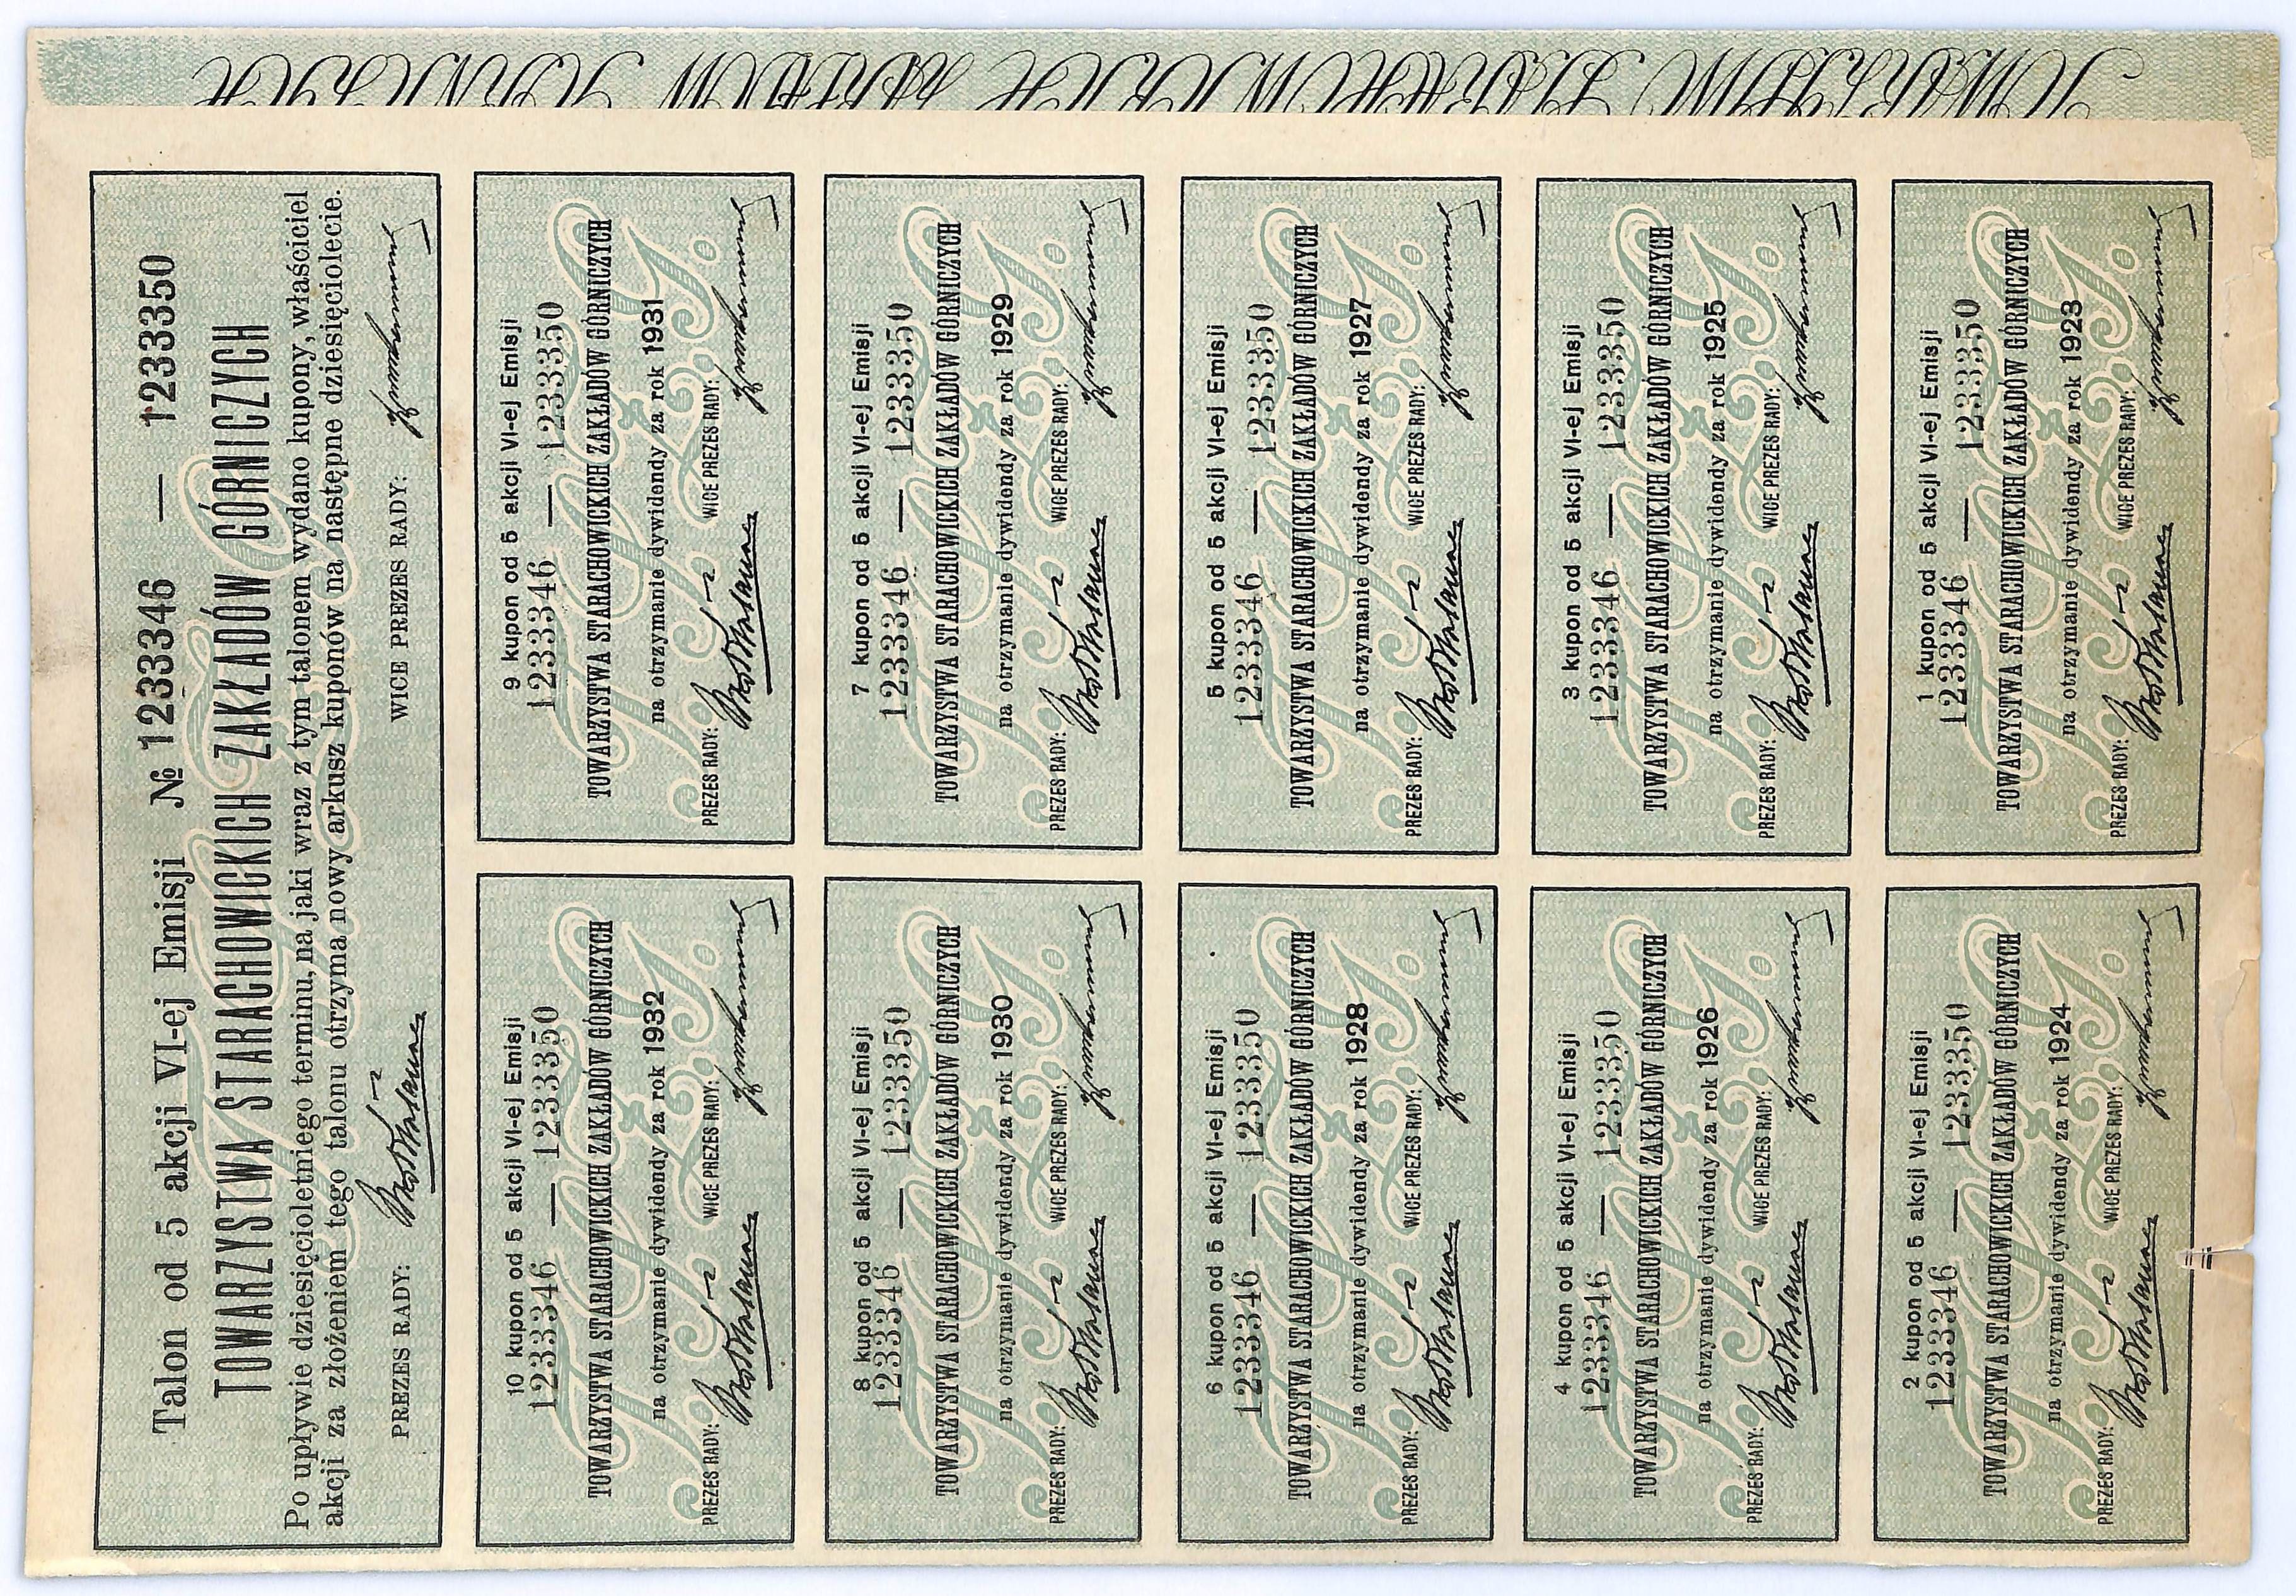 Talon od 5 akcji VI-ej Emisji № 1233346 — 1233350
TOWARZYSTWA STARACHOWICKICH ZAKŁADÓW GÓRNICZYCH
Po upływie dziesięcioletniego terminu, na jaki wraz z tym talonem wydano kupony, właściciel
akcji za złożeniem tego talonu otrzyma nowy arkusz kuponów na następne dziesięciolecie.
PREZES RADY: WICE PREZES RADY:
10 kupon od 5 akcji VI-ej Emisji
1233346 — 1233350
TOWARZYSTWA STARACHOWICKICH ZAKŁADÓW GÓRNICZYCH
na otrzymanie dywidendy za rok 1932
PREZES RADY: WICE PREZES RADY:
9 kupon od 5 akcji VI-ej Emisji
1233346 — 1233350
TOWARZYSTWA STARACHOWICKICH ZAKŁADÓW GÓRNICZYCH
na otrzymanie dywidendy za rok 1931
PREZES RADY: WICE PREZES RADY:
8 kupon od 5 akcji VI-ej Emisji
1233346 — 1233350
TOWARZYSTWA STARACHOWICKICH ZAKŁADÓW GÓRNICZYCH
na otrzymanie dywidendy za rok 1930
PREZES RADY: WICE PREZES RADY:
7 kupon od 5 akcji VI-ej Emisji
1233346 — 1233350
TOWARZYSTWA STARACHOWICKICH ZAKŁADÓW GÓRNICZYCH
na otrzymanie dywidendy za rok 1929
PREZES RADY: WICE PREZES RADY:
6 kupon od 5 akcji VI-ej Emisji
1233346 — 1233350
TOWARZYSTWA STARACHOWICKICH ZAKŁADÓW GÓRNICZYCH
na otrzymanie dywidendy za rok 1928
PREZES RADY: WICE PREZES RADY:
5 kupon od 5 akcji VI-ej Emisji
1233346 — 1233350
TOWARZYSTWA STARACHOWICKICH ZAKŁADÓW GÓRNICZYCH
na otrzymanie dywidendy za rok 1927
PREZES RADY: WICE PREZES RADY:
4 kupon od 5 akcji VI-ej Emisji
1233346 — 1233350
TOWARZYSTWA STARACHOWICKICH ZAKŁADÓW GÓRNICZYCH
na otrzymanie dywidendy za rok 1926
PREZES RADY: WICE PREZES RADY:
3 kupon od 5 akcji VI-ej Emisji
1233346 — 1233350
TOWARZYSTWA STARACHOWICKICH ZAKŁADÓW GÓRNICZYCH
na otrzymanie dywidendy za rok 1925
PREZES RADY: WICE PREZES RADY:
2 kupon od 5 akcji VI-ej Emisji
1233346 — 1233350
TOWARZYSTWA STARACHOWICKICH ZAKŁADÓW GÓRNICZYCH
na otrzymanie dywidendy za rok 1924
PREZES RADY: WICE PREZES RADY:
1 kupon od 5 akcji VI-ej Emisji
1233346 — 1233350
TOWARZYSTWA STARACHOWICKICH ZAKŁADÓW GÓRNICZYCH
na otrzymanie dywidendy za rok 1923
PREZES RADY: WICE PREZES RADY: